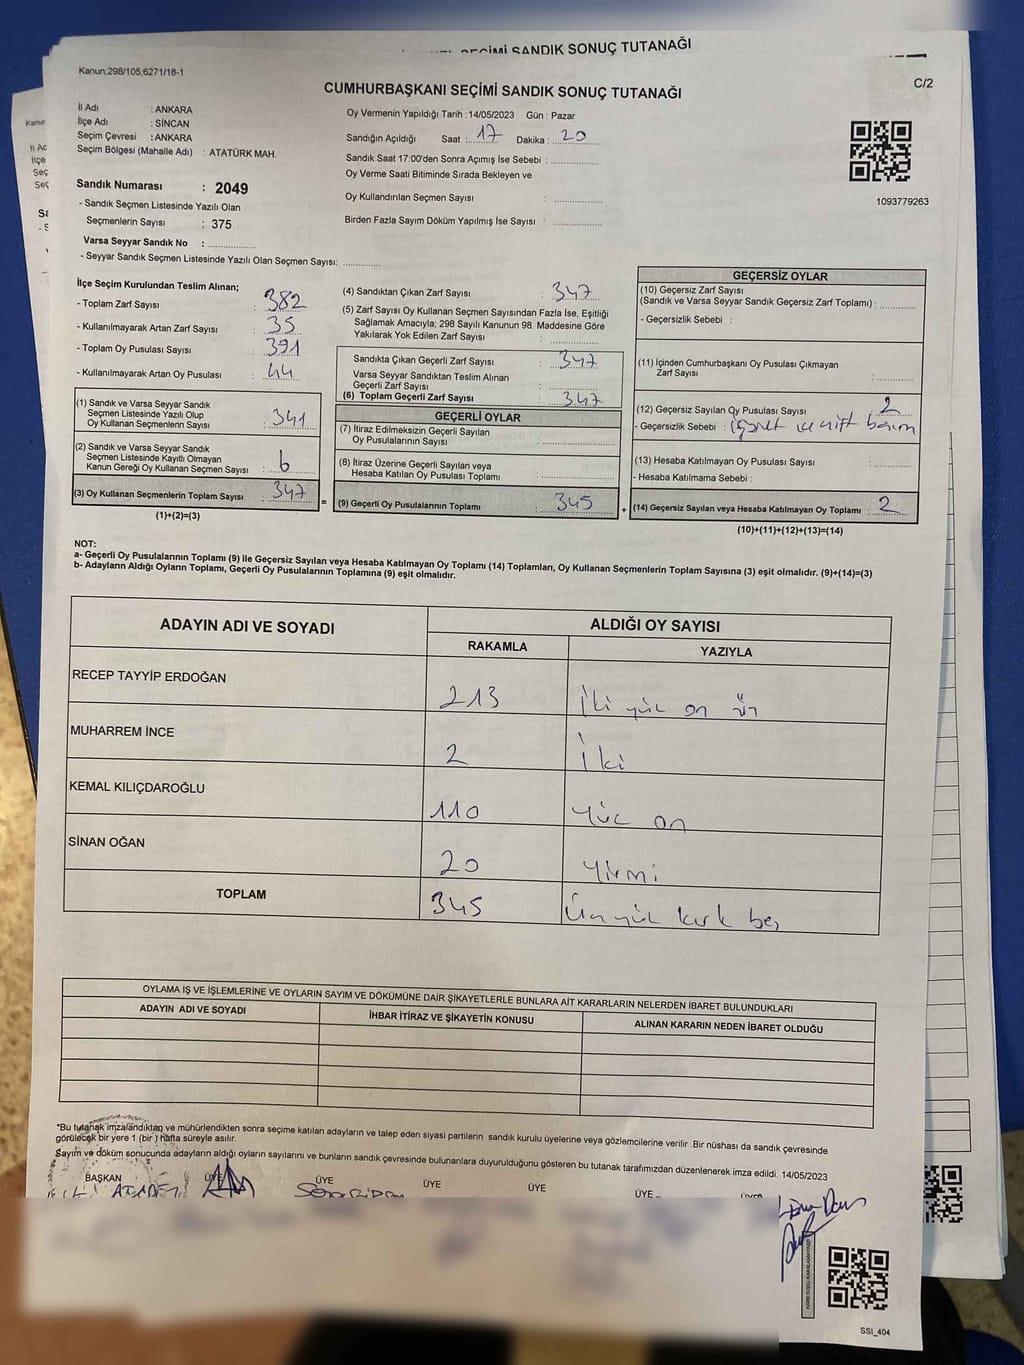 SEÇİMİ SANDIK SONUÇ TUTANAĞI
Kanun,298/105,6271/18-1
C/2
CUMHURBAŞKANI SEÇİMİ SANDIK SONUÇ TUTANAĞI
İl Adı : ANKARA
İlçe Adı : SİNCAN
Seçim Çevresi : ANKARA
Seçim Bölgesi (Mahalle Adı) : ATATÜRK MAH.
Sandık Numarası : 2049
- Sandık Seçmen Listesinde Yazılı Olan
Seçmenlerin Sayısı : 375
Varsa Seyyar Sandık No :
- Seyyar Sandık Seçmen Listesinde Yazılı Olan Seçmen Sayısı:
Oy Vermenin Yapıldığı Tarih :14/05/2023 Gün : Pazar
Sandığın Açıldığı Saat : 17 Dakika : 20
Sandık Saat 17:00'den Sonra Açımış İse Sebebi :
Oy Verme Saati Bitiminde Sırada Bekleyen ve
Oy Kullandırılan Seçmen Sayısı :
Birden Fazla Sayım Döküm Yapılmış İse Sayısı :
1093779263
İlçe Seçim Kurulundan Teslim Alınan;
- Toplam Zarf Sayısı : 382
- Kullanılmayarak Artan Zarf Sayısı : 35
- Toplam Oy Pusulası Sayısı : 391
- Kullanılmayarak Artan Oy Pusulası : 44
(1) Sandık ve Varsa Seyyar Sandık
Seçmen Listesinde Yazılı Olup
Oy Kullanan Seçmenlerin Sayısı : 341
(2) Sandık ve Varsa Seyyar Sandık
Seçmen Listesinde Kayıtlı Olmayan
Kanun Gereği Oy Kullanan Seçmen Sayısı : 6
(3) Oy Kullanan Seçmenlerin Toplam Sayısı : 347
(1)+(2)=(3)
=
(4) Sandıktan Çıkan Zarf Sayısı : 347
(5) Zarf Sayısı Oy Kullanan Seçmen Sayısından Fazla İse, Eşitliği
Sağlamak Amacıyla; 298 Sayılı Kanunun 98. Maddesine Göre
Yakılarak Yok Edilen Zarf Sayısı :
Sandıkta Çıkan Geçerli Zarf Sayısı : 347
Varsa Seyyar Sandıktan Teslim Alınan
Geçerli Zarf Sayısı :
(6) Toplam Geçerli Zarf Sayısı : 347
GEÇERLİ OYLAR
(7) İtiraz Edilmeksizin Geçerli Sayılan
Oy Pusulalarının Sayısı :
(8) İtiraz Üzerine Geçerli Sayılan veya
Hesaba Katılan Oy Pusulası Toplamı :
(9) Geçerli Oy Pusulalarının Toplamı : 345
+
GEÇERSİZ OYLAR
(10) Geçersiz Zarf Sayısı
(Sandık ve Varsa Seyyar Sandık Geçersiz Zarf Toplamı) :
- Geçersizlik Sebebi :
(11) İçinden Cumhurbaşkanı Oy Pusulası Çıkmayan
Zarf Sayısı :
(12) Geçersiz Sayılan Oy Pusulası Sayısı : 2
- Geçersizlik Sebebi : işaret ve çift basım
(13) Hesaba Katılmayan Oy Pusulası Sayısı :
- Hesaba Katılmama Sebebi :
(14) Geçersiz Sayılan veya Hesaba Katılmayan Oy Toplamı : 2
(10)+(11)+(12)+(13)=(14)
NOT:
a- Geçerli Oy Pusulalarının Toplamı (9) ile Geçersiz Sayılan veya Hesaba Katılmayan Oy Toplamı (14) Toplamları, Oy Kullanan Seçmenlerin Toplam Sayısına (3) eşit olmalıdır. (9)+(14)=(3)
b- Adayların Aldığı Oyların Toplamı, Geçerli Oy Pusulalarının Toplamına (9) eşit olmalıdır.
ADAYIN ADI VE SOYADI ALDIĞI OY SAYISI
RAKAMLA YAZIYLA
RECEP TAYYİP ERDOĞAN 213 İki yüz on üç
MUHARREM İNCE 2 İki
KEMAL KILIÇDAROĞLU 110 Yüz on
SİNAN OĞAN 20 Yirmi
TOPLAM 345 Üç yüz kırk beş
OYLAMA İŞ VE İŞLEMLERİNE VE OYLARIN SAYIM VE DÖKÜMÜNE DAİR ŞİKAYETLERLE BUNLARA AİT KARARLARIN NELERDEN İBARET BULUNDUKLARI
ADAYIN ADI VE SOYADI İHBAR İTİRAZ VE ŞİKAYETİN KONUSU ALINAN KARARIN NEDEN İBARET OLDUĞU
*Bu tutanak imzalandıktan ve mühürlendikten sonra seçime katılan adayların ve talep eden siyasi partilerin sandık kurulu üyelerine veya gözlemcilerine verilir .Bir nüshası da sandık çevresinde
görülecek bir yere 1 (bir ) hafta süreyle asılır.
Sayım ve döküm sonucunda adayların aldığı oyların sayılarını ve bunların sandık çevresinde bulunanlara duyurulduğunu gösteren bu tutanak tarafımızdan düzenlenerek imza edildi. 14/05/2023
BAŞKAN ÜYE ÜYE ÜYE ÜYE ÜYE ÜYE
SSI_404